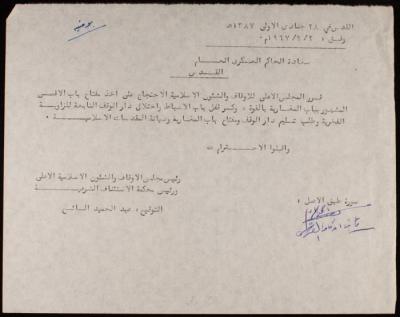 القدس في ٢٨ جمادى الاولى ١٣٨٧هـ
وفق: ٢/٩/١٩٦٧م.
سعادة الحاكم العسكري العام
القدس
قرر المجلس الاعلى للاوقاف والشئون الاسلامية الاحتجاج على اخذ مفتاح باب الاقصى
المشهور بباب المغاربة بالقوة، وكسر قفل باب الاسباط واحتلال دار الوقف التابعة للزاوية
الفخرية وطلب تسليم دار الوقف ومفتاح باب المغاربة وصيانة المقدسات الاسلامية.
واقبلوا الاحترام
رئيس مجلس الاوقاف والشئون الاسلامية الاعلى
ورئيس محكمة الاستئناف الشرعية
التوقيع: عبد الحميد السائح
صورة طبق الاصل: